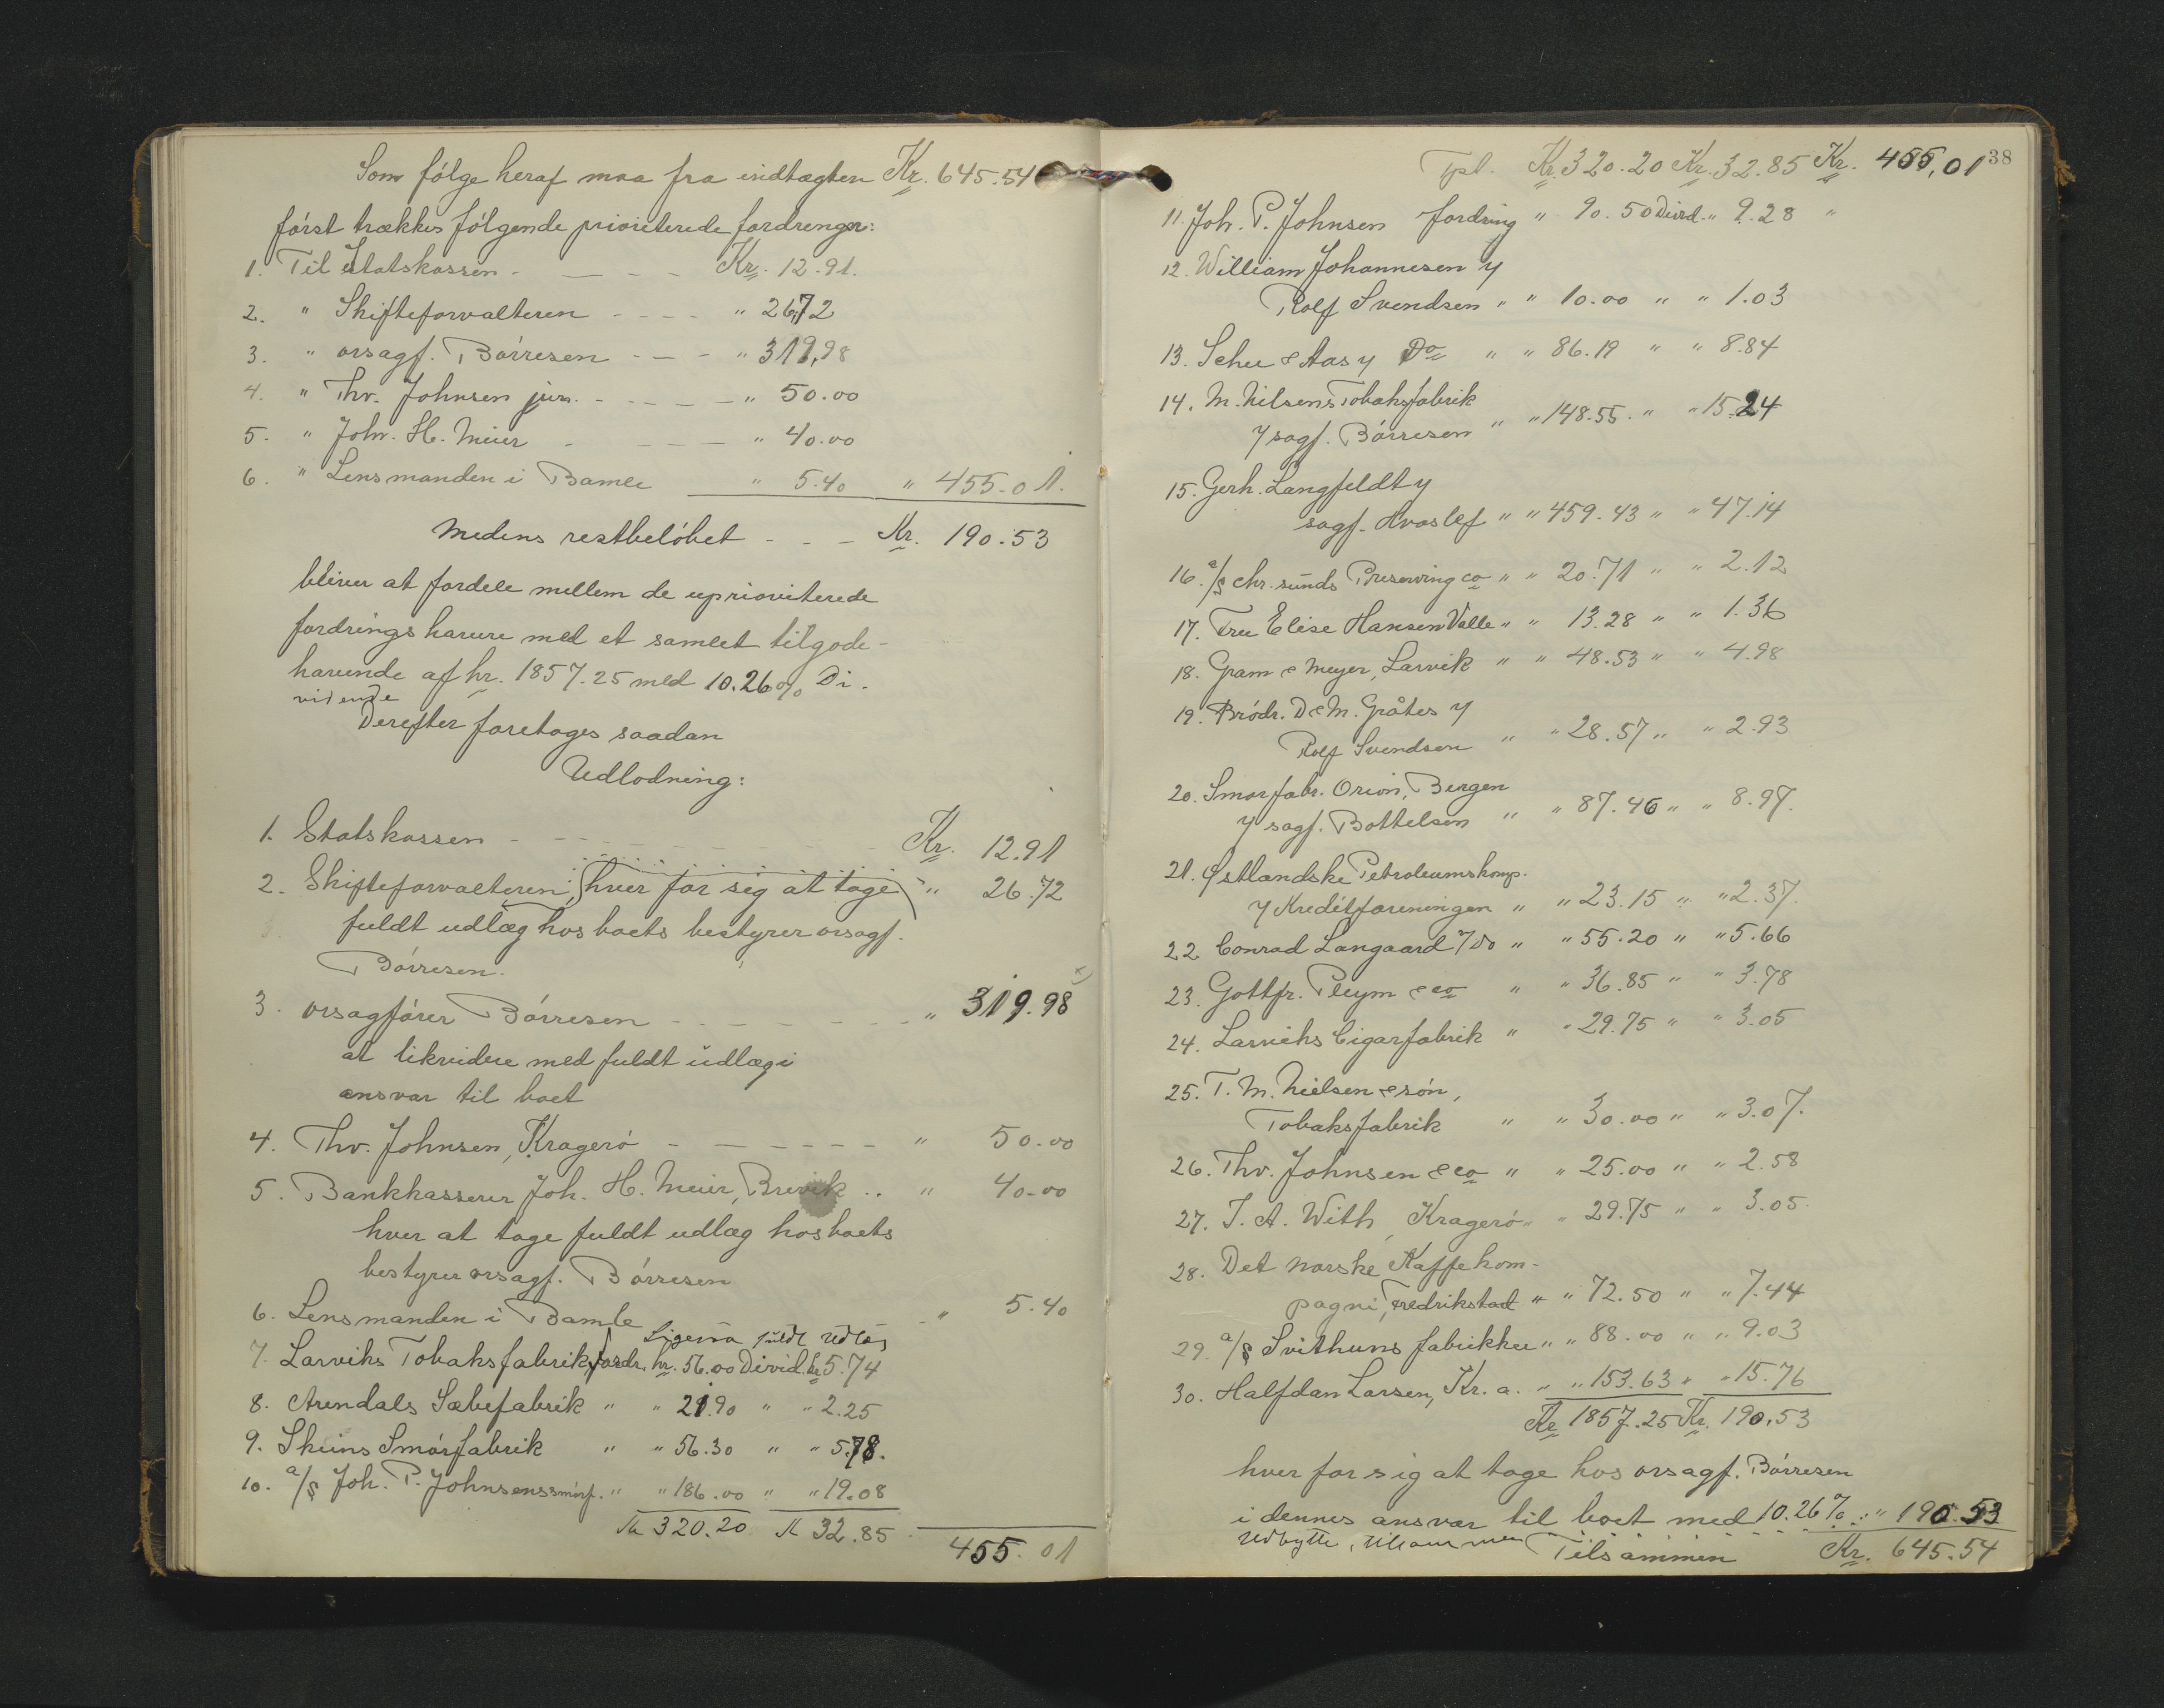 Som følge heraf maa fra indtægten Kr. 645.54
først trækkes følgende prioriterede fordringer:
1. Til Statskassen - - - - Kr. 12.91.
2. " Skifteforvalteren - - - - " 26.72
3. " orsagf. Børresen - - - " 319,98
4. " Thv. Johnsen jun. - - - - - " 50.00
5. " Joh. H. Meier - - - - " 40.00
6. " Lensmanden i Bamle " 5.40 " 455.01.
Medens restbeløbet - - - Kr. 190.53
bliver at fordele mellem de uprioriterede
fordringshavere med et samlet tilgode-
havende af kr. 1857.25 med 10.26% Di-
vidende
Derefter foretages saadan
Udlodning:
1. Statskassen - - - - - - - Kr. 12.91
2. Skifteforvalteren, (hver for sig at tage) " 26.72
fuldt udlæg hos boets bestyrer orsagf.
Børresen.
3. orsagfører Børresen - - - - - - - " 319.98 x)
at likvidere med fuldt udlæg i
ansvar til boet
4. Thv. Johnsen, Kragerø - - - - - - " 50.00
5. Bankkasserer Joh. H. Meier, Brevik .. " 40.00
hver at tage fuldt udlæg hos boets
bestyrer orsagf. Børresen
6. Lensmanden i Bamle - " 5.40
Ligesaa fuldt Udlæg
7. Larviks Tobaksfabrik, fordr. kr. 56.00 Divid. kr 5.74
8. Arendals Sæbefabrik " " 21.90 " " 2.25
9. Skiens Smørfabrik " " 56.30 " " 5.78.
10. a/s Joh. P. Johnsens smørf. " " 186.00 " " 19.08
Kr 320.20 Kr 32.85
455.01
38
Tpt. Kr. 320.20 Kr. 32.85 Kr. 455,01
11. Joh. P. Johnsen fordring " 90.50 Divid. " 9.28 "
12. William Johannesen v/
Rolf Svendsen " " 10.00 " " 1.03
13. Schee & Aas v/ Do " " 86.19 " " 8.84
14. M. Nilsens Tobaksfabrik
v/ sagf. Børresen " " 148.55. " " 15.24
15. Gerh. Langfeldt v/
sagf. Hvoslef " " 459.43 " " 47.14
16. a/s Chr.sunds Preserving co " " 20.71 " " 2.12
17. Fru Elise Hansen Valle " " 13.28 " " 1.36
18. Gram & Meyer, Larvik " " 48.53 " " 4.98
19. Brødr. D & M. Gråtes v/
Rolf Svendsen " " 28.57 " " 2.93
20. Smørfabr. Orion, Bergen
v/ sagf. Bottelsen " " 87.46 " " 8.97.
21. Østlandske Petroleumskomp.
v/ Kreditforeningen " " 23.15 " " 2.37.
22. Conrad Langaard v/ Do " " 55.20 " " 5.66
23. Gottfr. Pleym & co " " 36.85 " " 3.78
24. Larviks Cigarfabrik " " 29.75 " " 3.05
25. T. M. Nielsen & søn,
Tobaksfabrik " " 30.00 " " 3.07.
26. Thv. Johnsen & co " " 25.00 " " 2.58
27. J. A. With, Kragerø " " 29.75 " " 3.05.
28. Det norske Kaffekom-
pagni, Fredrikstad " " 72.50 " " 7.44
29. a/s Svithuns fabrikker " " 88.00 " " 9.03
30. Halfdan Larsen, Kr.a. " " 153.63 " " 15.76
Kr 1857.25 Kr. 190.53
hver for sig at tage hos orsagf. Børresen
i dennes ansvar til boet med 10.26% .. " 190.53
Udbytte, Tilsammen Kr. 645.54